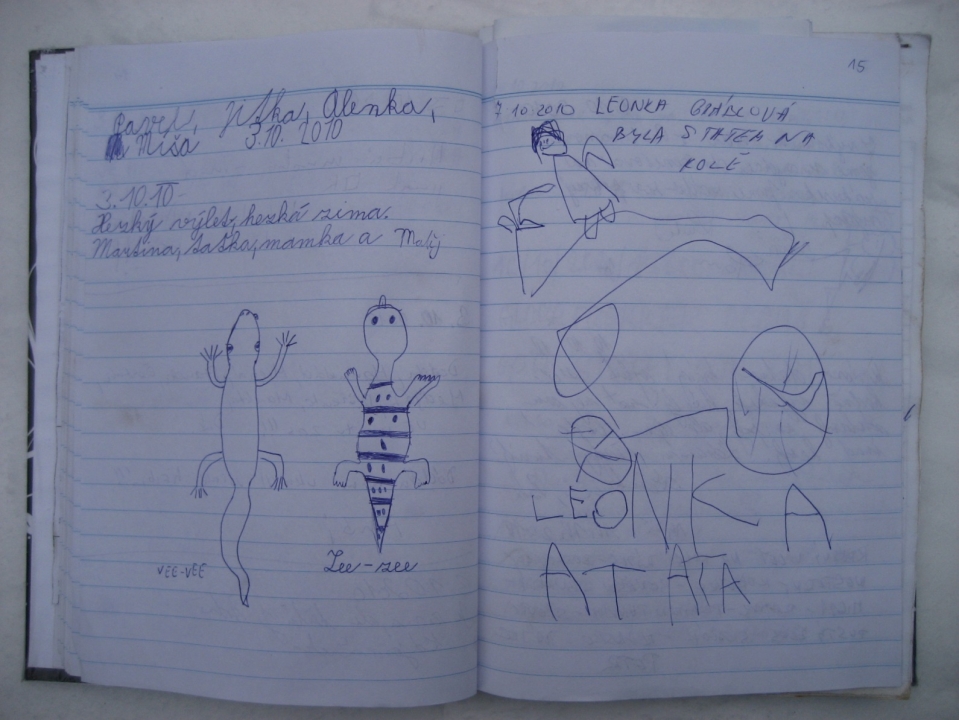 Pavel, Jitka, Alenka,
Míša 3.10. 2010
3.10.10
Hezký výlet, hezká zima.
Martina, taťka, mamka a Malý
VEE-VEE
Zee-zee
15
7 10 2010 LEONKA
BYLA S TATEM NA
KOLE
LEONKA
A TATA